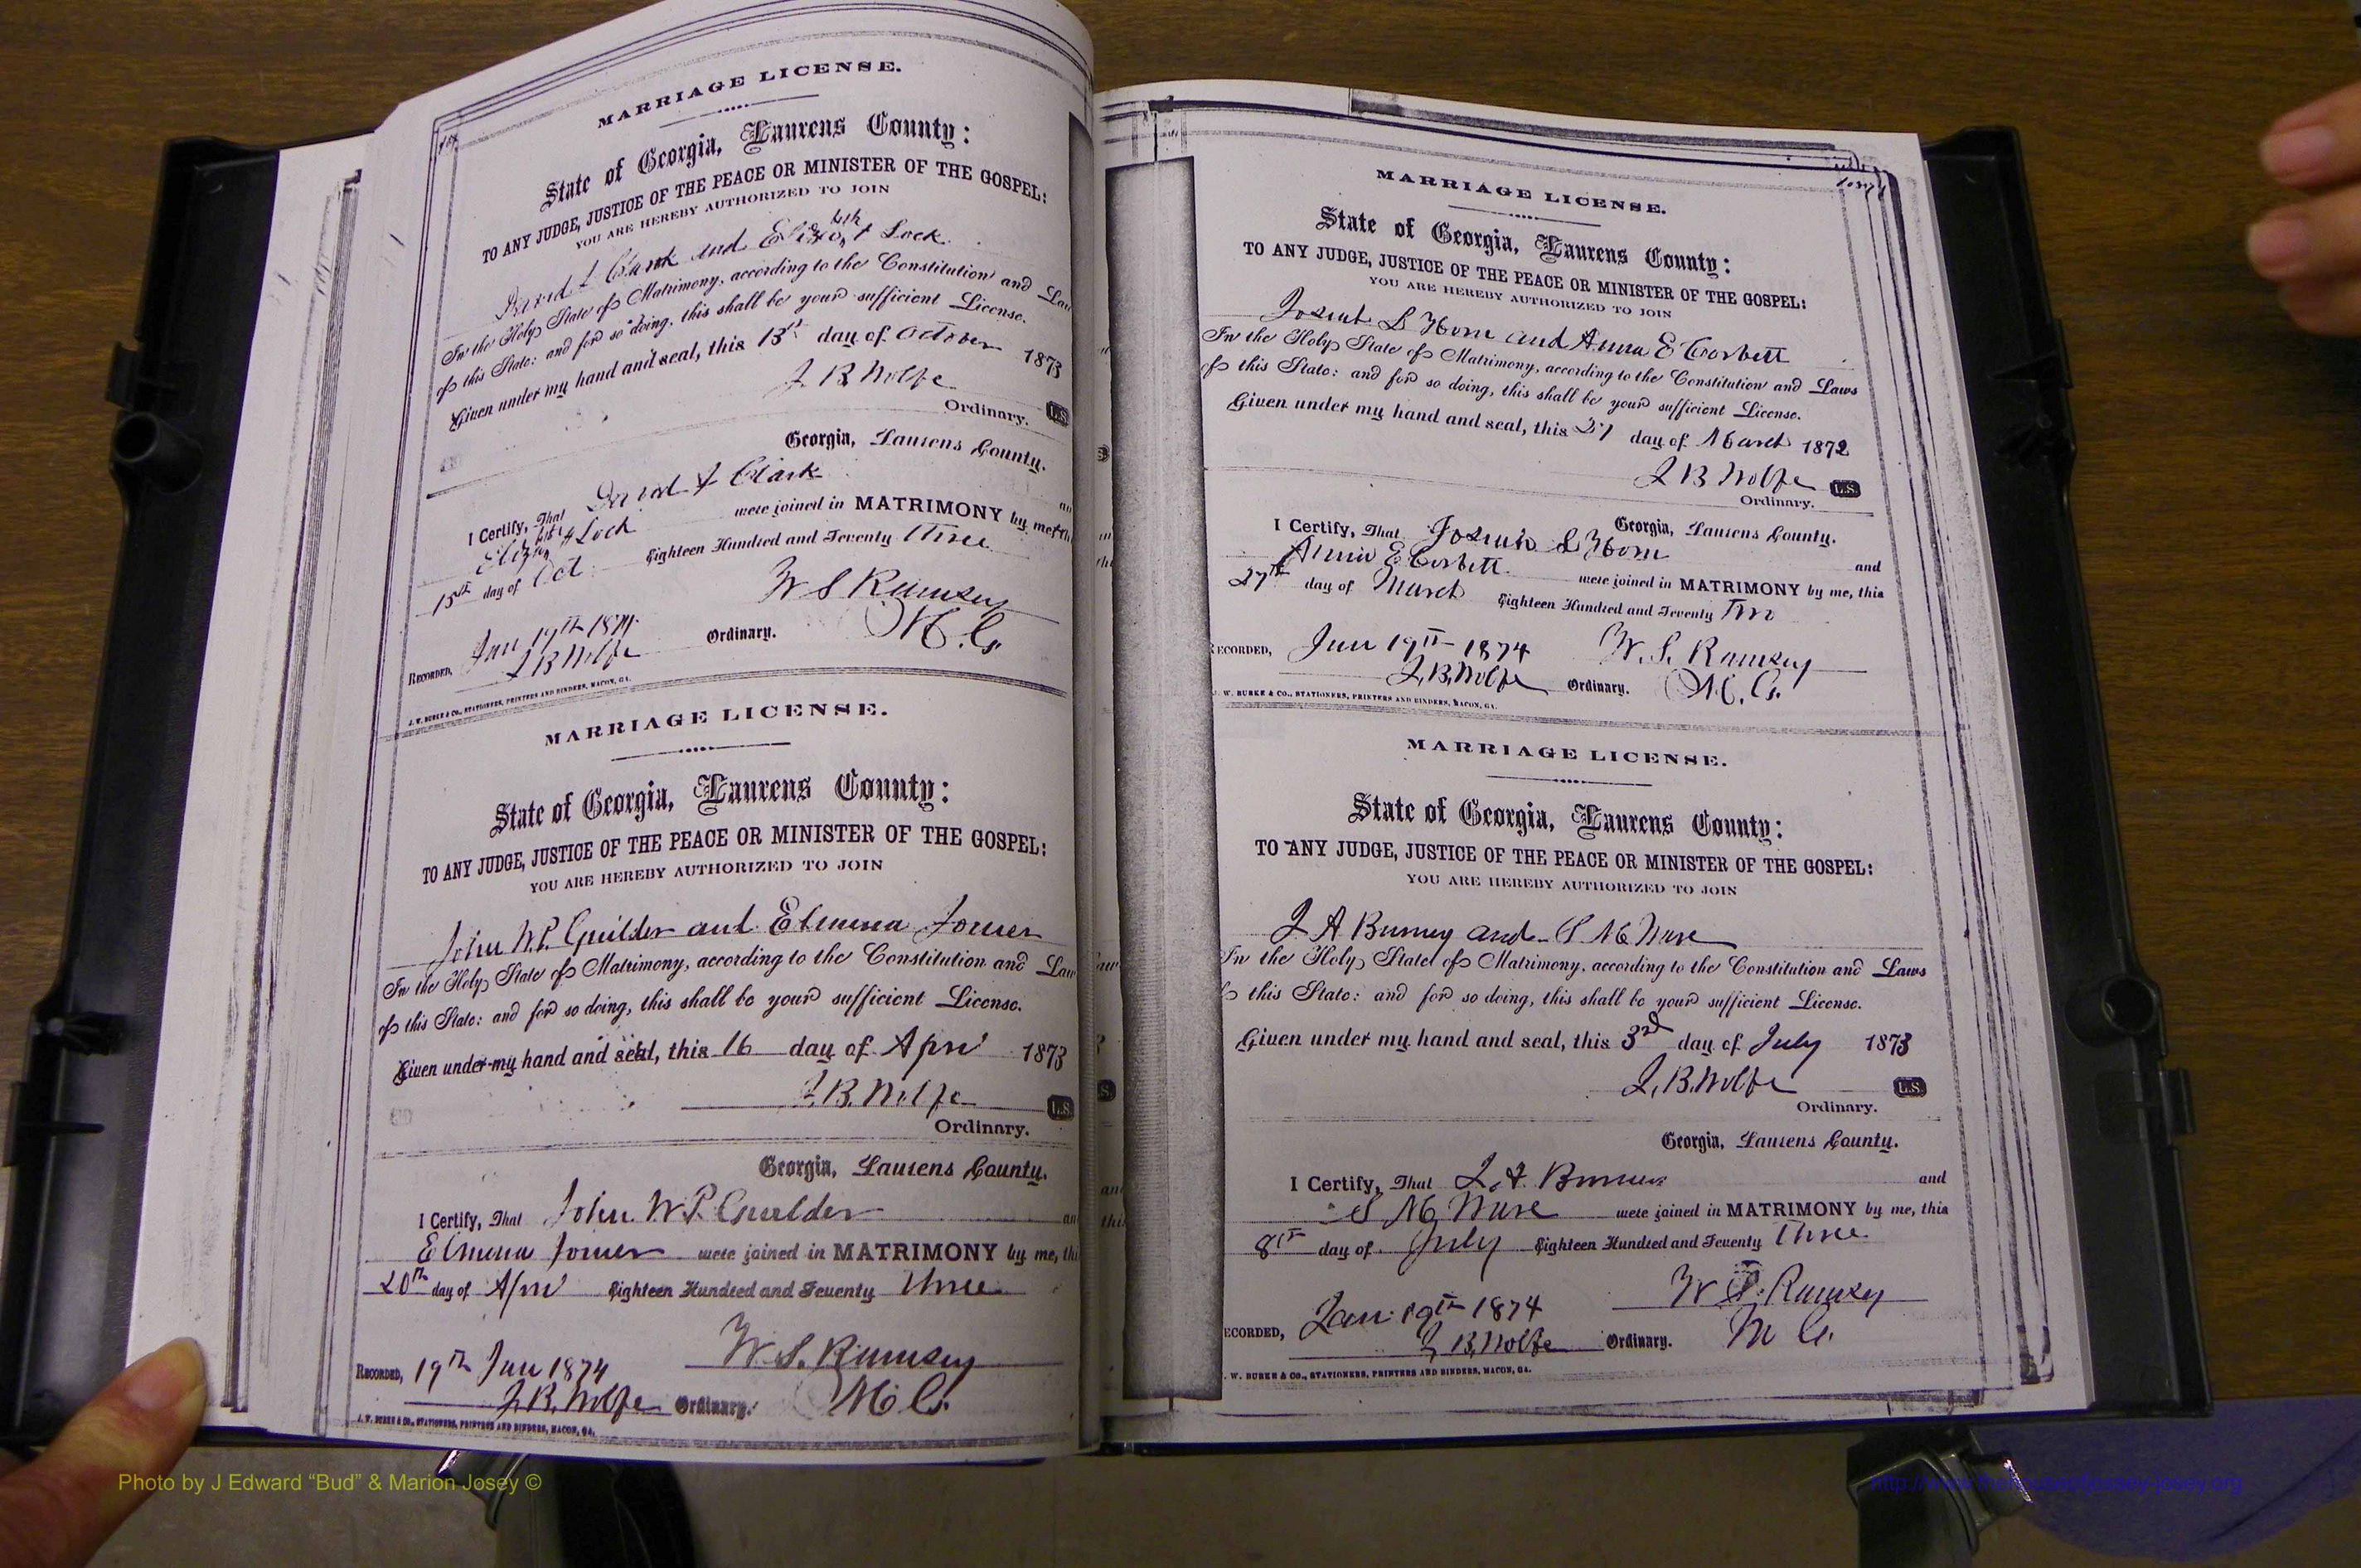 MARRIAGE LICENSE.
State of Georgia, Laurens County:
TO ANY JUDGE, JUSTICE OF THE PEACE OR MINISTER OF THE GOSPEL:
YOU ARE HEREBY AUTHORIZED TO JOIN
David F Clark and Elizabeth Lock
In the Holy State of Matrimony, according to the Constitution and Law
of this State: and for so doing, this shall be your sufficient License.
Given under my hand and seal, this 13th day of October 1873
J B Wolfe
Ordinary. L.S.
Georgia, Laurens County.
I Certify, That David F Clark an
Lock were joined in MATRIMONY by me
15th day of Oct Eighteen Hundred and Seventy Three
W S Ramsey
M. G.
RECORDED, Jan 19th 1874
J B Wolfe Ordinary.
J. W. BURKE & CO., STATIONERS, PRINTERS AND BINDERS, MACON, GA.
MARRIAGE LICENSE.
State of Georgia, Laurens County:
TO ANY JUDGE, JUSTICE OF THE PEACE OR MINISTER OF THE GOSPEL:
YOU ARE HEREBY AUTHORIZED TO JOIN
John W.P. Guilder and Elmena Joiner
In the Holy State of Matrimony, according to the Constitution and Law
of this State: and for so doing, this shall be your sufficient License.
Given under my hand and seal, this 16 day of April 1873
J. B. Wolfe L.S.
Ordinary.
Georgia, Laurens County.
I Certify, That John W P Guilder an
Elmena Joiner were joined in MATRIMONY by me, thi
20th day of April Eighteen Hundred and Seventy Three
W. S. Ramsey
RECORDED, 19th Jan 1874
J. B. Wolfe Ordinary. M G.
J. W. BURKE & CO., STATIONERS, PRINTERS AND BINDERS, MACON, GA.
MARRIAGE LICENSE.
State of Georgia, Laurens County:
TO ANY JUDGE, JUSTICE OF THE PEACE OR MINISTER OF THE GOSPEL:
YOU ARE HEREBY AUTHORIZED TO JOIN
Josiah S Horn and Anna E Corbett
In the Holy State of Matrimony, according to the Constitution and Laws
of this State: and for so doing, this shall be your sufficient License.
Given under my hand and seal, this 27 day of March 1872
J B Wolfe L.S.
Ordinary.
Georgia, Laurens County.
I Certify, That Josiah S Horn and
Annie E Corbett were joined in MATRIMONY by me, this
27th day of March Eighteen Hundred and Seventy Two
W. S. Ramsey
RECORDED, Jan 19th 1874
J. B. Wolfe Ordinary. M. G.
. W. BURKE & CO., STATIONERS, PRINTERS AND BINDERS, MACON, GA.
MARRIAGE LICENSE.
State of Georgia, Laurens County:
TO ANY JUDGE, JUSTICE OF THE PEACE OR MINISTER OF THE GOSPEL:
YOU ARE HEREBY AUTHORIZED TO JOIN
J A Burney and S M Ware
In the Holy State of Matrimony, according to the Constitution and Laws
this State: and for so doing, this shall be your sufficient License.
Given under my hand and seal, this 3rd day of July 1873
J. B. Wolfe L.S.
Ordinary.
Georgia, Laurens County.
I Certify, That J. A. Burney and
S M Ware were joined in MATRIMONY by me, this
8th day of July Eighteen Hundred and Seventy Three
W S. Ramsey
ECORDED, Jan 19th 1874
J. B. Wolfe Ordinary. M G.
. W. BURKE & CO., STATIONERS, PRINTERS AND BINDERS, MACON, GA.
Photo by J Edward “Bud” & Marion Josey ©
http://www.thehouseofjossey-josey.org